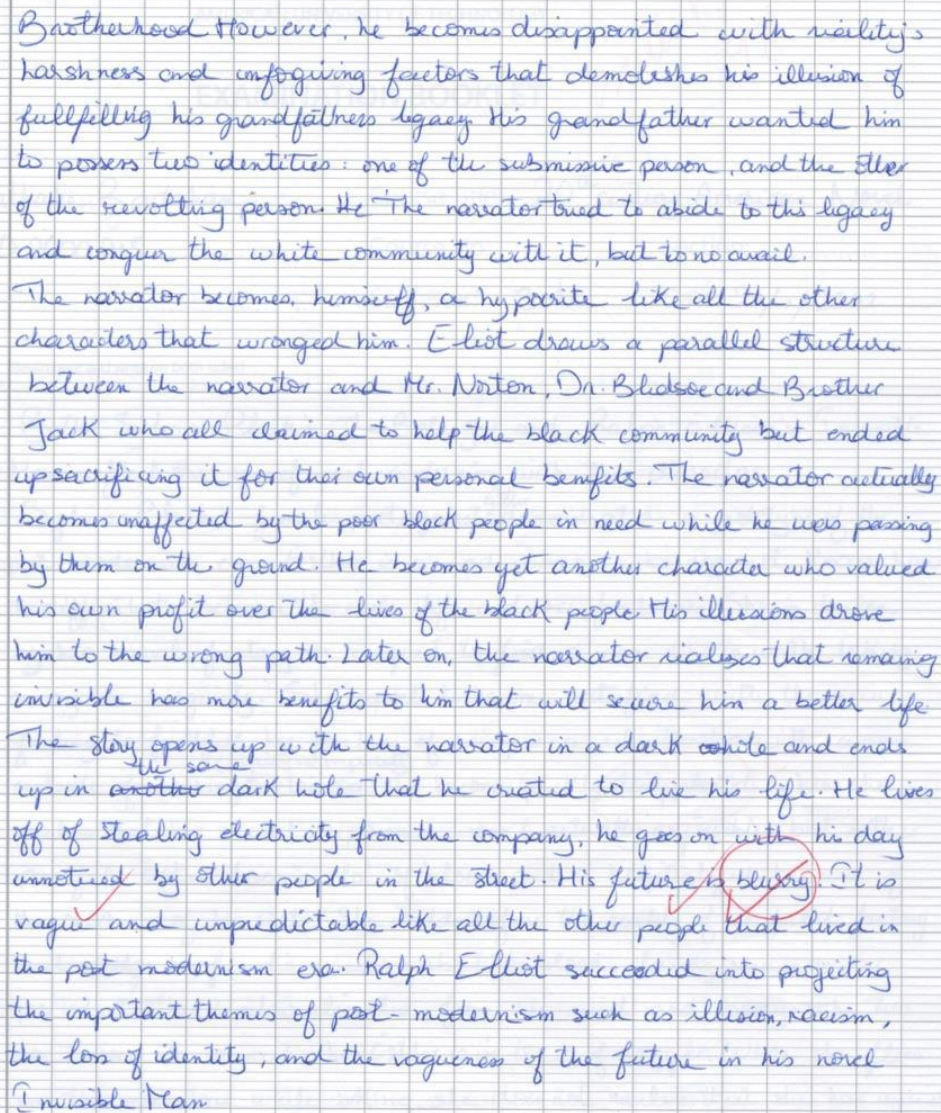 Brotherhood However, he becomes disappointed with reality's
harshness and unfogiving factors that demolishes his illusion of
fullfilling his grandfathers legacy. His grandfather wanted him
to possess two identities : one of the submissive person, and the other
of the revolting person. He The narrator tried to abide to this legacy
and conquer the white community with it, but to no avail.
The narrator becomes, himself, a hypocrite like all the other
characters that wronged him. Eliot draws a parallel structure
between the narrator and Mr. Norton, Dr. Bledsoe and Brother
Jack who all claimed to help the black community but ended
up sacrificing it for their own personal benefits. The narrator actually
becomes unaffected by the poor black people in need while he was passing
by them on the ground. He becomes yet another character who valued
his own profit over the lives of the black people. His illusions drove
him to the wrong path. Later on, the narrator realizes that remaining
invisible has more benefits to him that will secure him a better life.
The story opens up with the narrator in a dark hole and ends
the same
up in another dark hole that he created to live his life. He lives
off of stealing electricity from the company, he goes on with his day
unnoticed by other people in the street. His future is blurry. It is
vague and unpredictable like all the other people that lived in
the post modernism era. Ralph Elliot succeeded into projecting
the important themes of post-modernism such as illusion, racism,
the loss of identity, and the vagueness of the future in his novel
Invisible Man